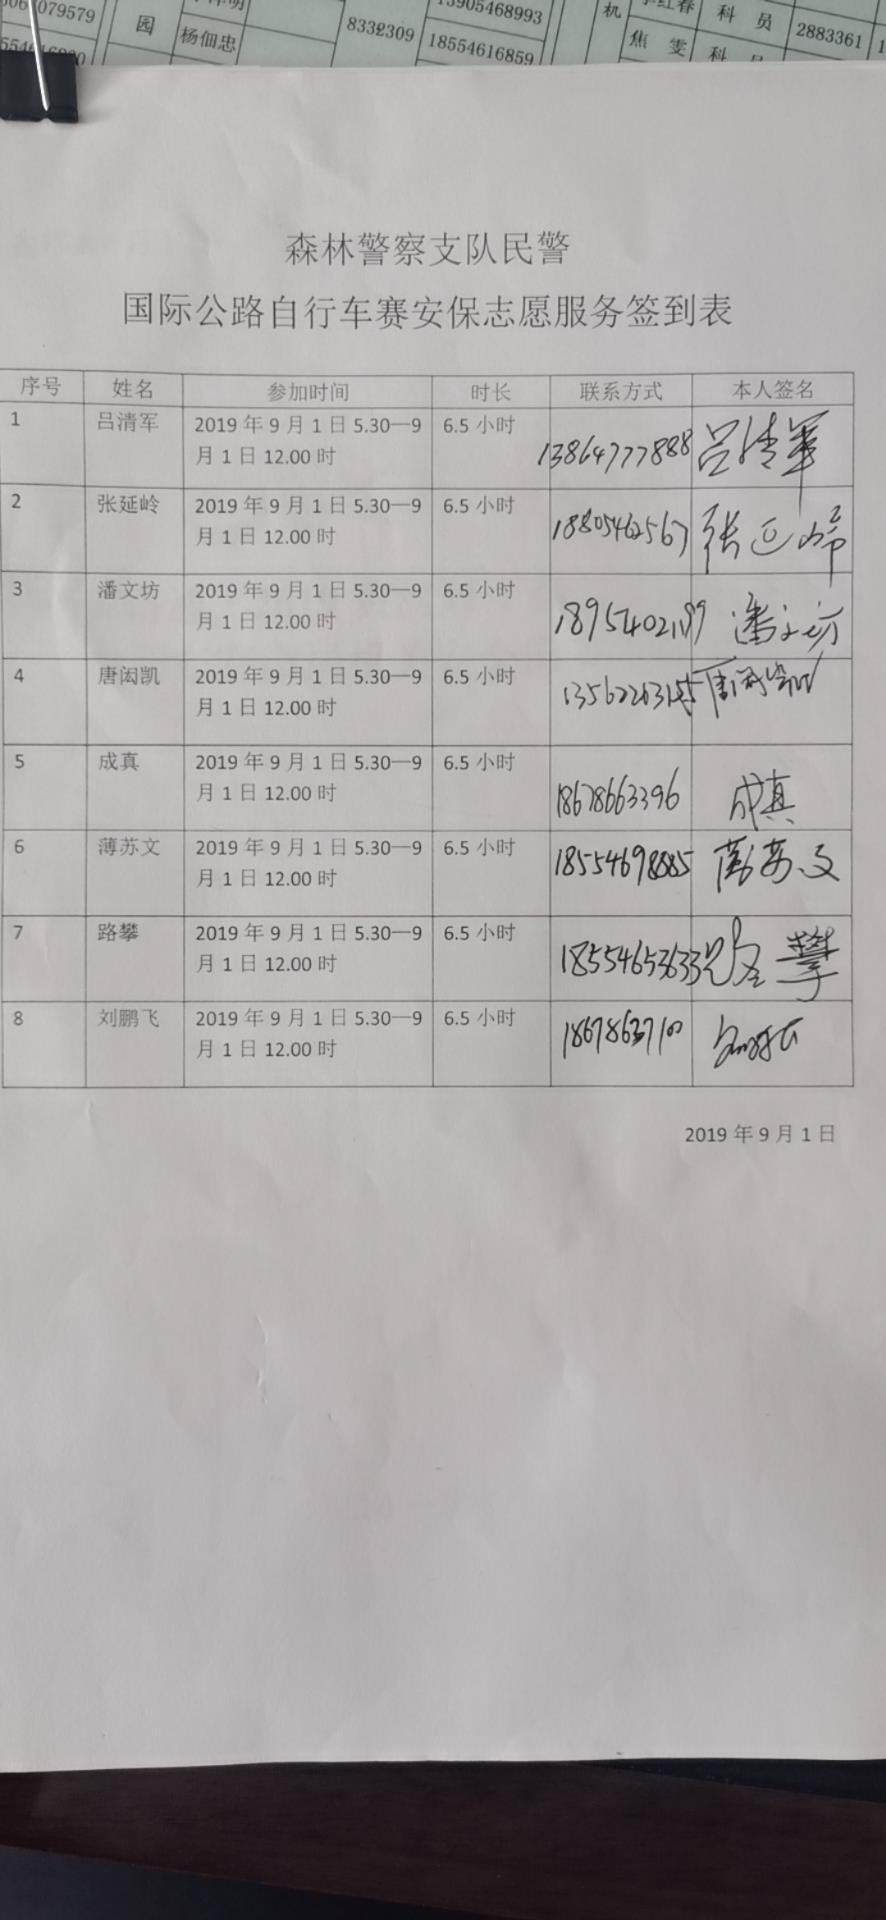 079579
园
杨佃忠
8332309
13905468993
18554616859
机
科 员
焦 雯
2883361
森林警察支队民警
国际公路自行车赛安保志愿服务签到表
序号 姓名 参加时间 时长 联系方式 本人签名
1 吕清军 2019 年 9 月 1 日 5.30—9 6.5 小时
月 1 日 12.00 时 13864777888 吕清军
2 张延岭 2019 年 9 月 1 日 5.30—9 6.5 小时
月 1 日 12.00 时 18805462567 张延岭
3 潘文坊 2019 年 9 月 1 日 5.30—9 6.5 小时
月 1 日 12.00 时 潘文坊
4 唐闳凯 2019 年 9 月 1 日 5.30—9 6.5 小时
月 1 日 12.00 时 唐闳凯
5 成真 2019 年 9 月 1 日 5.30—9 6.5 小时
月 1 日 12.00 时 18678663396 成真
6 薄苏文 2019 年 9 月 1 日 5.30—9 6.5 小时
月 1 日 12.00 时 18554698885 薄苏文
7 路攀 2019 年 9 月 1 日 5.30—9 6.5 小时
月 1 日 12.00 时 18554653633 路攀
8 刘鹏飞 2019 年 9 月 1 日 5.30—9 6.5 小时
月 1 日 12.00 时 18678637100
2019 年 9 月 1 日